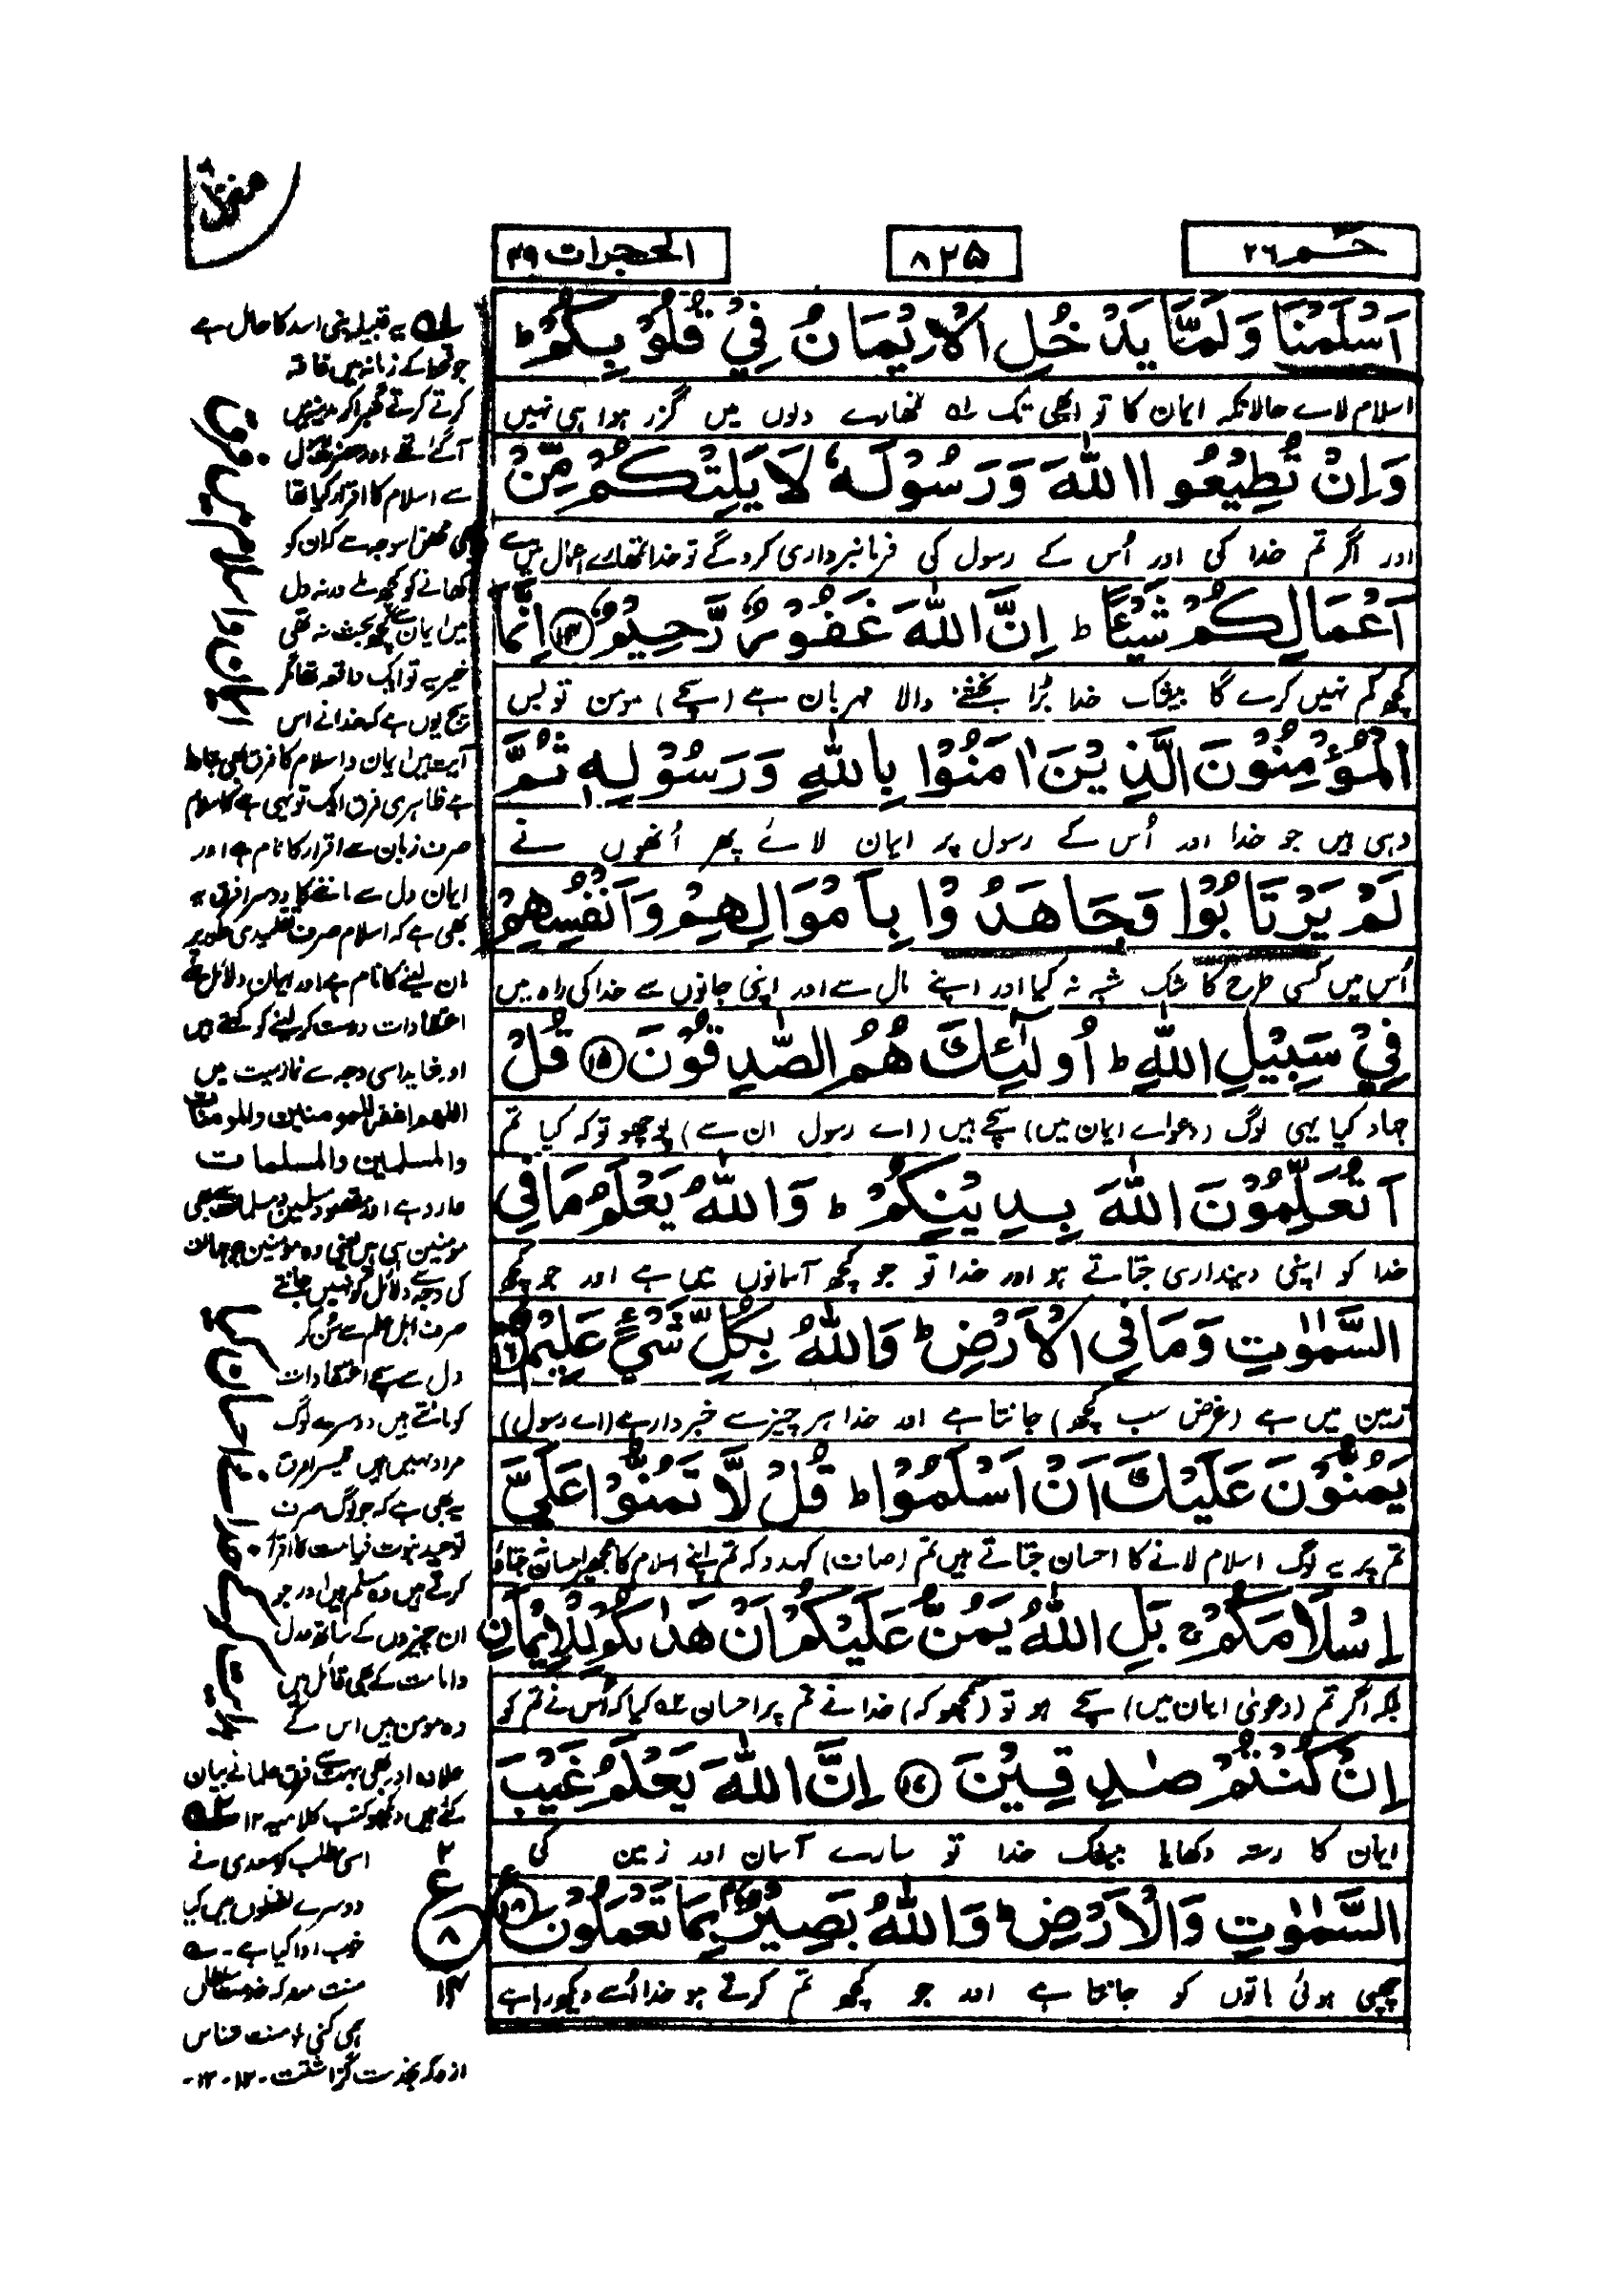 حٰمٓ ٢٦
٨٢۵
الحجرات ٤٩
منزل
اَسْلَمْنَا وَلَمَّا يَدْخُلِ الْاِيْمَانُ فِيْ قُلُوْبِكُمْ ؕ
اسلام لائے حالانکہ ایمان کا تو ابھی تک لہ تمھارے دلوں میں گزر ہوا ہی نہیں
وَاِنْ تُطِيْعُوا اللّٰهَ وَرَسُوْلَهٗ لَا يَلِتْكُمْ مِّنْ
اور اگر تم خدا کی اور اُس کے رسول کی فرمانبرداری کرو گے تو خدا تمھارے اعمال میں سے
اَعْمَالِكُمْ شَيْـًٔا ؕ اِنَّ اللّٰهَ غَفُوْرٌ رَّحِيْمٌ ﴿١٤﴾ اِنَّمَا
کچھ کم نہیں کرے گا بیشک خدا بڑا بخشنے والا مہربان ہے (سچے) مومن تو بس
الْمُؤْمِنُوْنَ الَّذِيْنَ اٰمَنُوْا بِاللّٰهِ وَرَسُوْلِهٖ ثُمَّ
وہی ہیں جو خدا اور اُس کے رسول پر ایمان لائے پھر اُنھوں نے
لَمْ يَرْتَابُوْا وَجَاهَدُوْا بِاَمْوَالِهِمْ وَاَنْفُسِهِمْ
اُس میں کسی طرح کا شک شبہ نہ کیا اور اپنے مال سے اور اپنی جانوں سے خدا کی راہ میں
فِيْ سَبِيْلِ اللّٰهِ ؕ اُولٰٓئِكَ هُمُ الصّٰدِقُوْنَ ﴿١٥﴾ قُلْ
جہاد کیا یہی لوگ (دعوائے ایمان میں) سچے ہیں (اے رسول ان سے) پوچھو تو کہ کیا تم
اَتُعَلِّمُوْنَ اللّٰهَ بِدِيْنِكُمْ ؕ وَاللّٰهُ يَعْلَمُ مَا فِي
خدا کو اپنی دینداری جتاتے ہو اور خدا تو جو کچھ آسمانوں میں ہے اور جو کچھ
السَّمٰوٰتِ وَمَا فِي الْاَرْضِ ؕ وَاللّٰهُ بِكُلِّ شَيْءٍ عَلِيْمٌ ﴿١٦﴾
زمین میں ہے (غرض سب کچھ) جانتا ہے اور خدا ہر چیز سے خبردار ہے (اے رسول)
يَمُنُّوْنَ عَلَيْكَ اَنْ اَسْلَمُوْا ؕ قُلْ لَّا تَمُنُّوْا عَلَيَّ
تم پر یہ لوگ اسلام لانے کا احسان جتاتے ہیں تم (صاف) کہدو کہ تم اپنے اسلام کا مجھپر احسان نہ جتاؤ
اِسْلَامَكُمْ ۚ بَلِ اللّٰهُ يَمُنُّ عَلَيْكُمْ اَنْ هَدٰىكُمْ لِلْاِيْمَانِ
بلکہ اگر تم (دعویٰ ایمان میں) سچے ہو تو (سمجھو کہ) خدا نے تم پر احسان کیا کہ اُس نے تم کو
اِنْ كُنْتُمْ صٰدِقِيْنَ ﴿١٧﴾ اِنَّ اللّٰهَ يَعْلَمُ غَيْبَ
ایمان کا رستہ دکھایا بیشک خدا تو سارے آسمان اور زمین کی
السَّمٰوٰتِ وَالْاَرْضِ ؕ وَاللّٰهُ بَصِيْرٌۢ بِمَا تَعْمَلُوْنَ ﴿١٨﴾
چھپی ہوئی باتوں کو جانتا ہے اور جو کچھ تم کرتے ہو خدا اُسے دیکھ رہا ہے
٢
ع
٨
١٤
لہ یہ قبیلہ بنی اسد کا حال ہے
جو قحط کے زمانہ میں فاقہ
کرتے کرتے گھبرا کر مدینہ میں
آگئے تھے اور
سے اسلام کا اقرار کیا تھا
اس وجہ سے کہ ان کو
کھانے کو کچھ ملے ورنہ دل
میں ایمان سے کچھ بحث نہ تھی
خیر یہ تو ایک واقعہ تھا مگر
سچ یوں ہے کہ خدا نے اس
آیت میں ایمان و اسلام کا فرق بھی بتا دیا
ہے ظاہری فرق ایک تو یہی ہے کہ اسلام
صرف زبان سے اقرار کا نام ہے اور
ایمان دل سے ماننے کا دوسرا فرق یہ
بھی ہے کہ اسلام صرف تقلیدی طور پر
مان لینے کا نام ہے اور ایمان دلائل سے
اعتقادات درست کر لینے کو کہتے ہیں
اور شاید اسی وجہ سے نماز میت میں
اللهم اغفر للمومنین والمومنات
والمسلمین والمسلمات
وارد ہے اور مقصود مسلمین و مسلمات سے بھی
مومنین ہی ہیں یعنی وہ مومنین جو جہالت
کی وجہ سے دلائل کو نہیں جانتے
صرف اہل علم سے سُن کر
دل سے سچے اعتقادات
کو مانتے ہیں دوسرے لوگ
مراد نہیں ہیں تیسرا فرق
یہ بھی ہے کہ جو لوگ صرف
توحید نبوت قیامت کا اقرار
کرتے ہیں وہ مسلم ہیں اور جو
ان چیزوں کے ساتھ عدل
و امامت کے بھی قائل ہیں
وہ مومن ہیں اس کے
علاوہ اور بھی بہت سے فرق علما نے بیان
کئے ہیں دیکھو کتب کلامیہ ١٢
اسی مطلب کو سعدی نے
دوسرے لفظوں میں کیا
خوب ادا کیا ہے۔
منت منہ کہ خدمت سلطاں
ہمی کنی منت شناس
ازو کہ بخدمت گزاشتت۔١٢۔١٢۔
ایمان و اسلام میں فرق